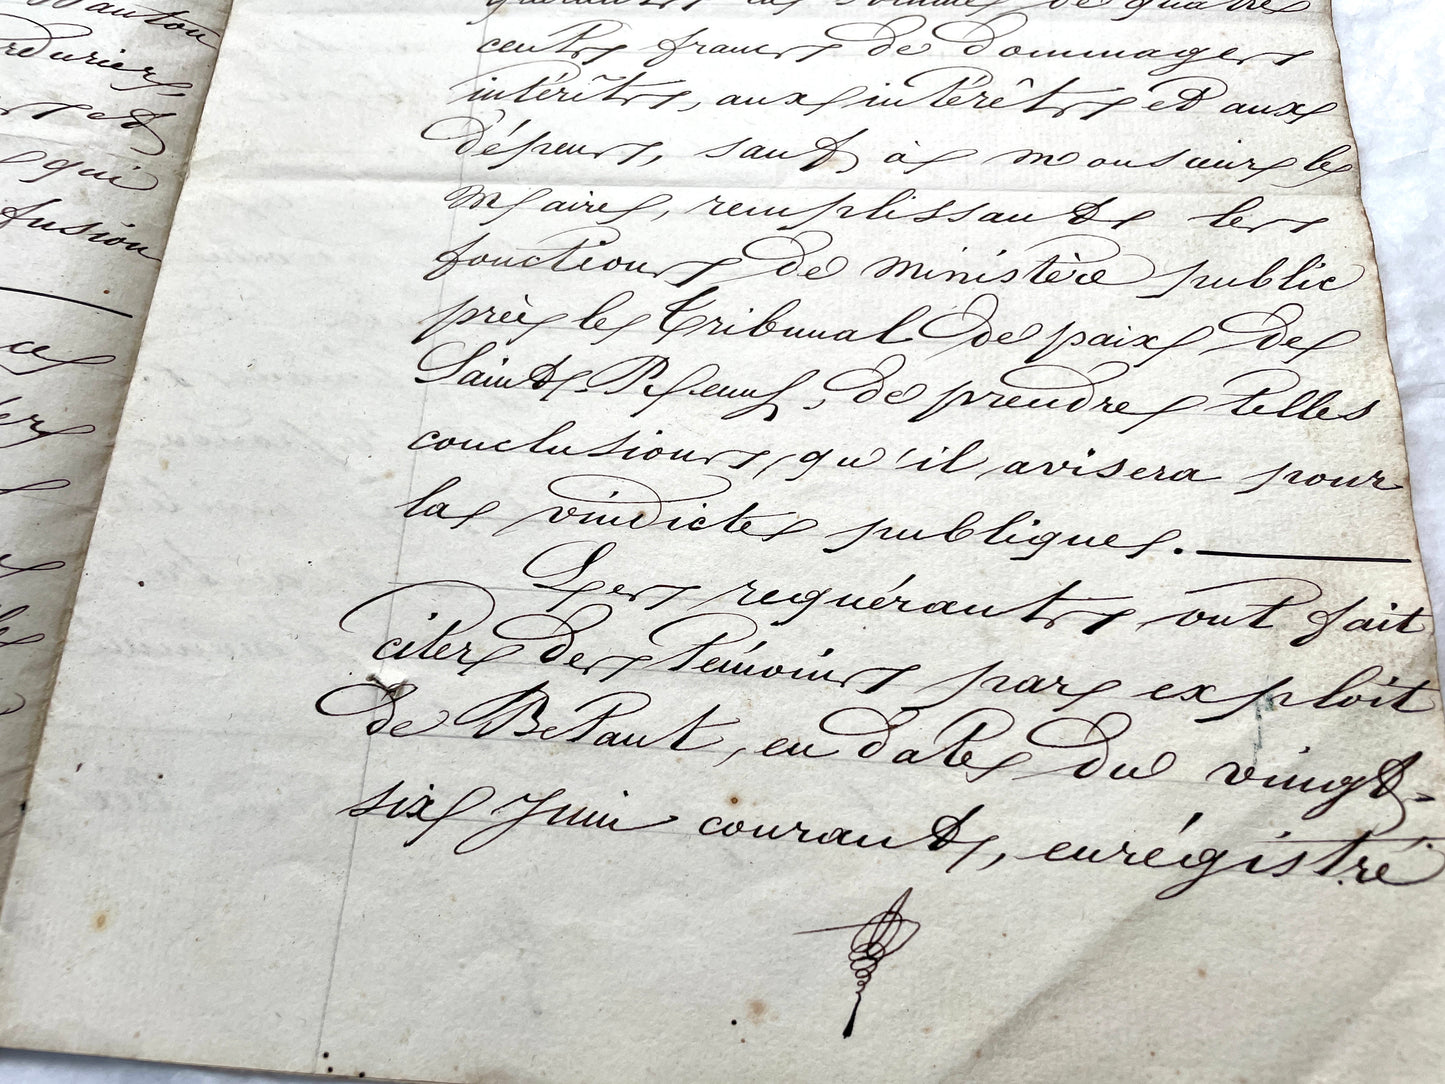 canton
et
qui
fusion
ces
la somme de quatre
cents francs de dommages
intérêts, aux intérêts et aux
dépens, sauf à monsieur le
Maire, remplissant les
fonctions de ministère public
près le tribunal de paix de
Saint, de prendre telles
conclusions qu'il avisera pour
la vindicte publique.
Les requérants ont fait
citer des témoins par exploit
de Betant, en date du vingt-
six Juin courant, enrégistré